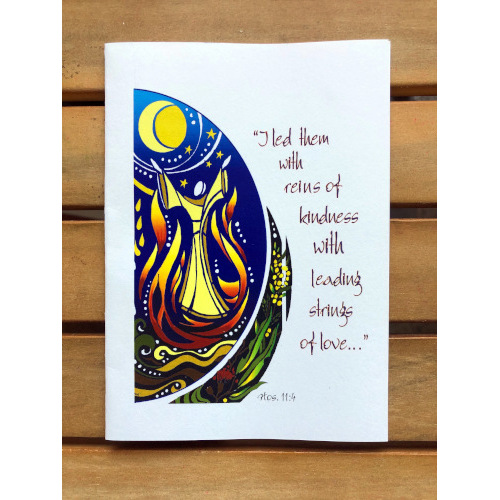 "I led them
with
reins of
kindness
with
leading
strings
of love..."
Hos. 11:4